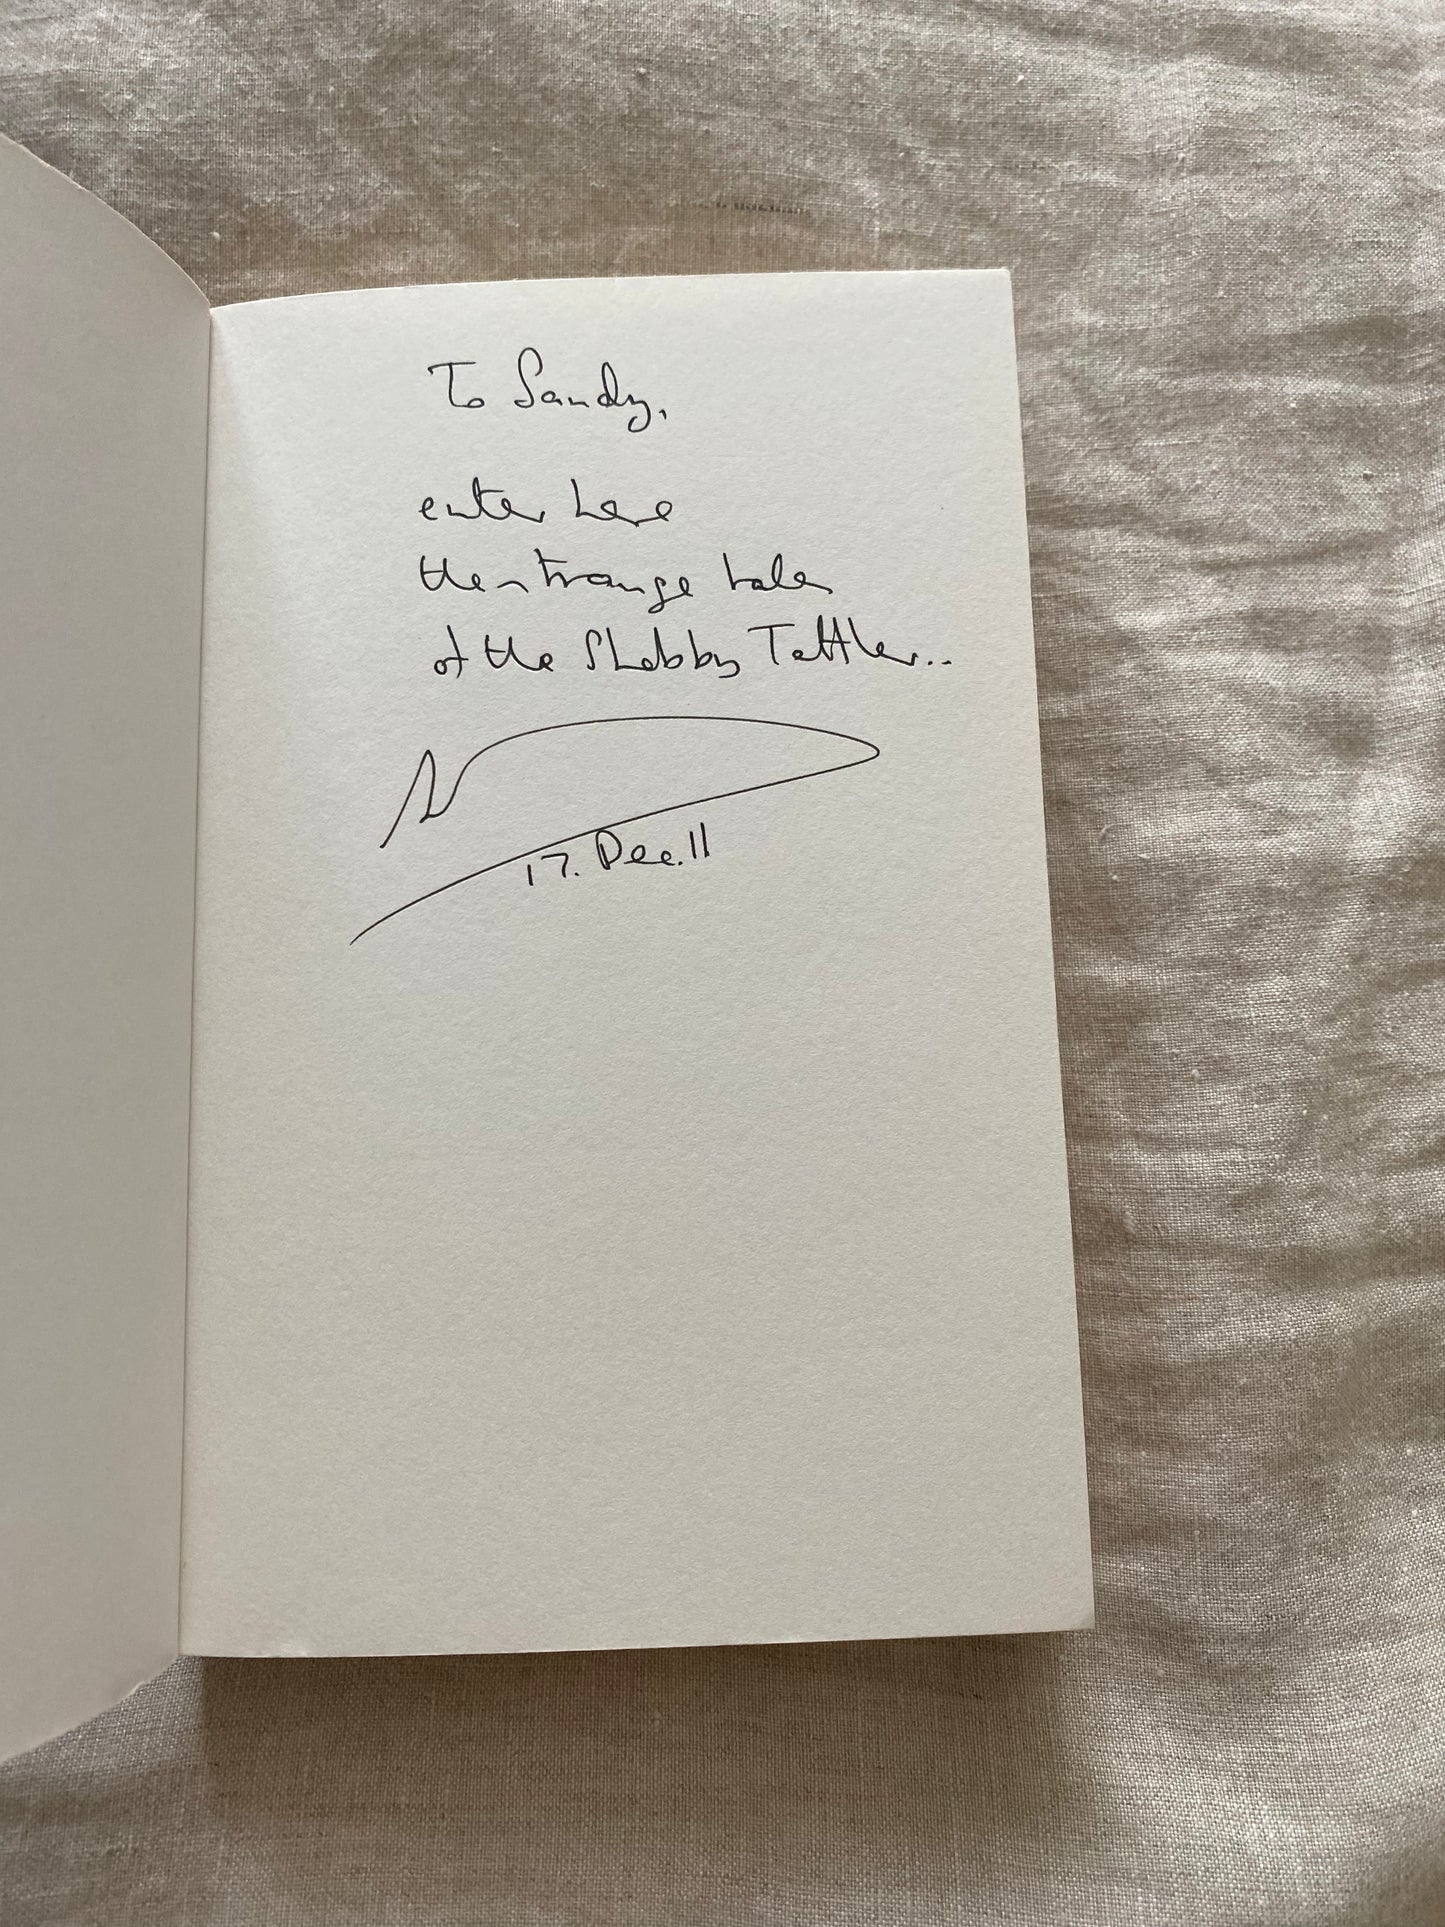 To Sandy,
enter here
the strange tales
of the Shabby Tattler...
17. Dec. 11